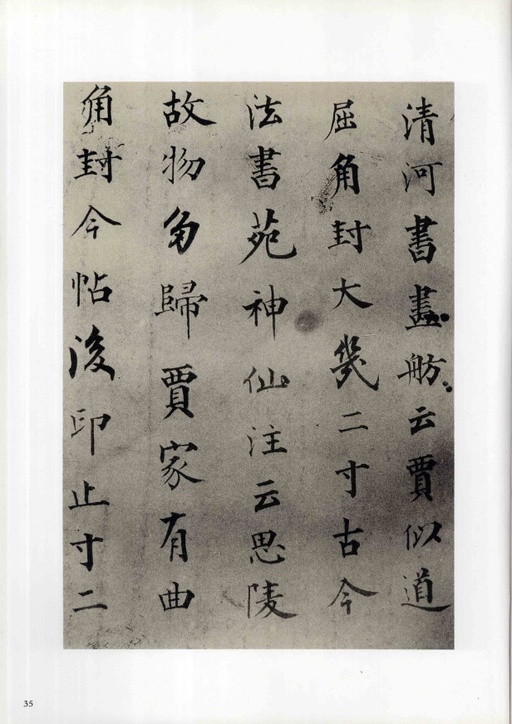 清河書畫舫云賈似道
屈角封大幾二寸古今
法書苑神仙注云思陵
故物多歸賈家有曲
角封今帖後印止寸二
35